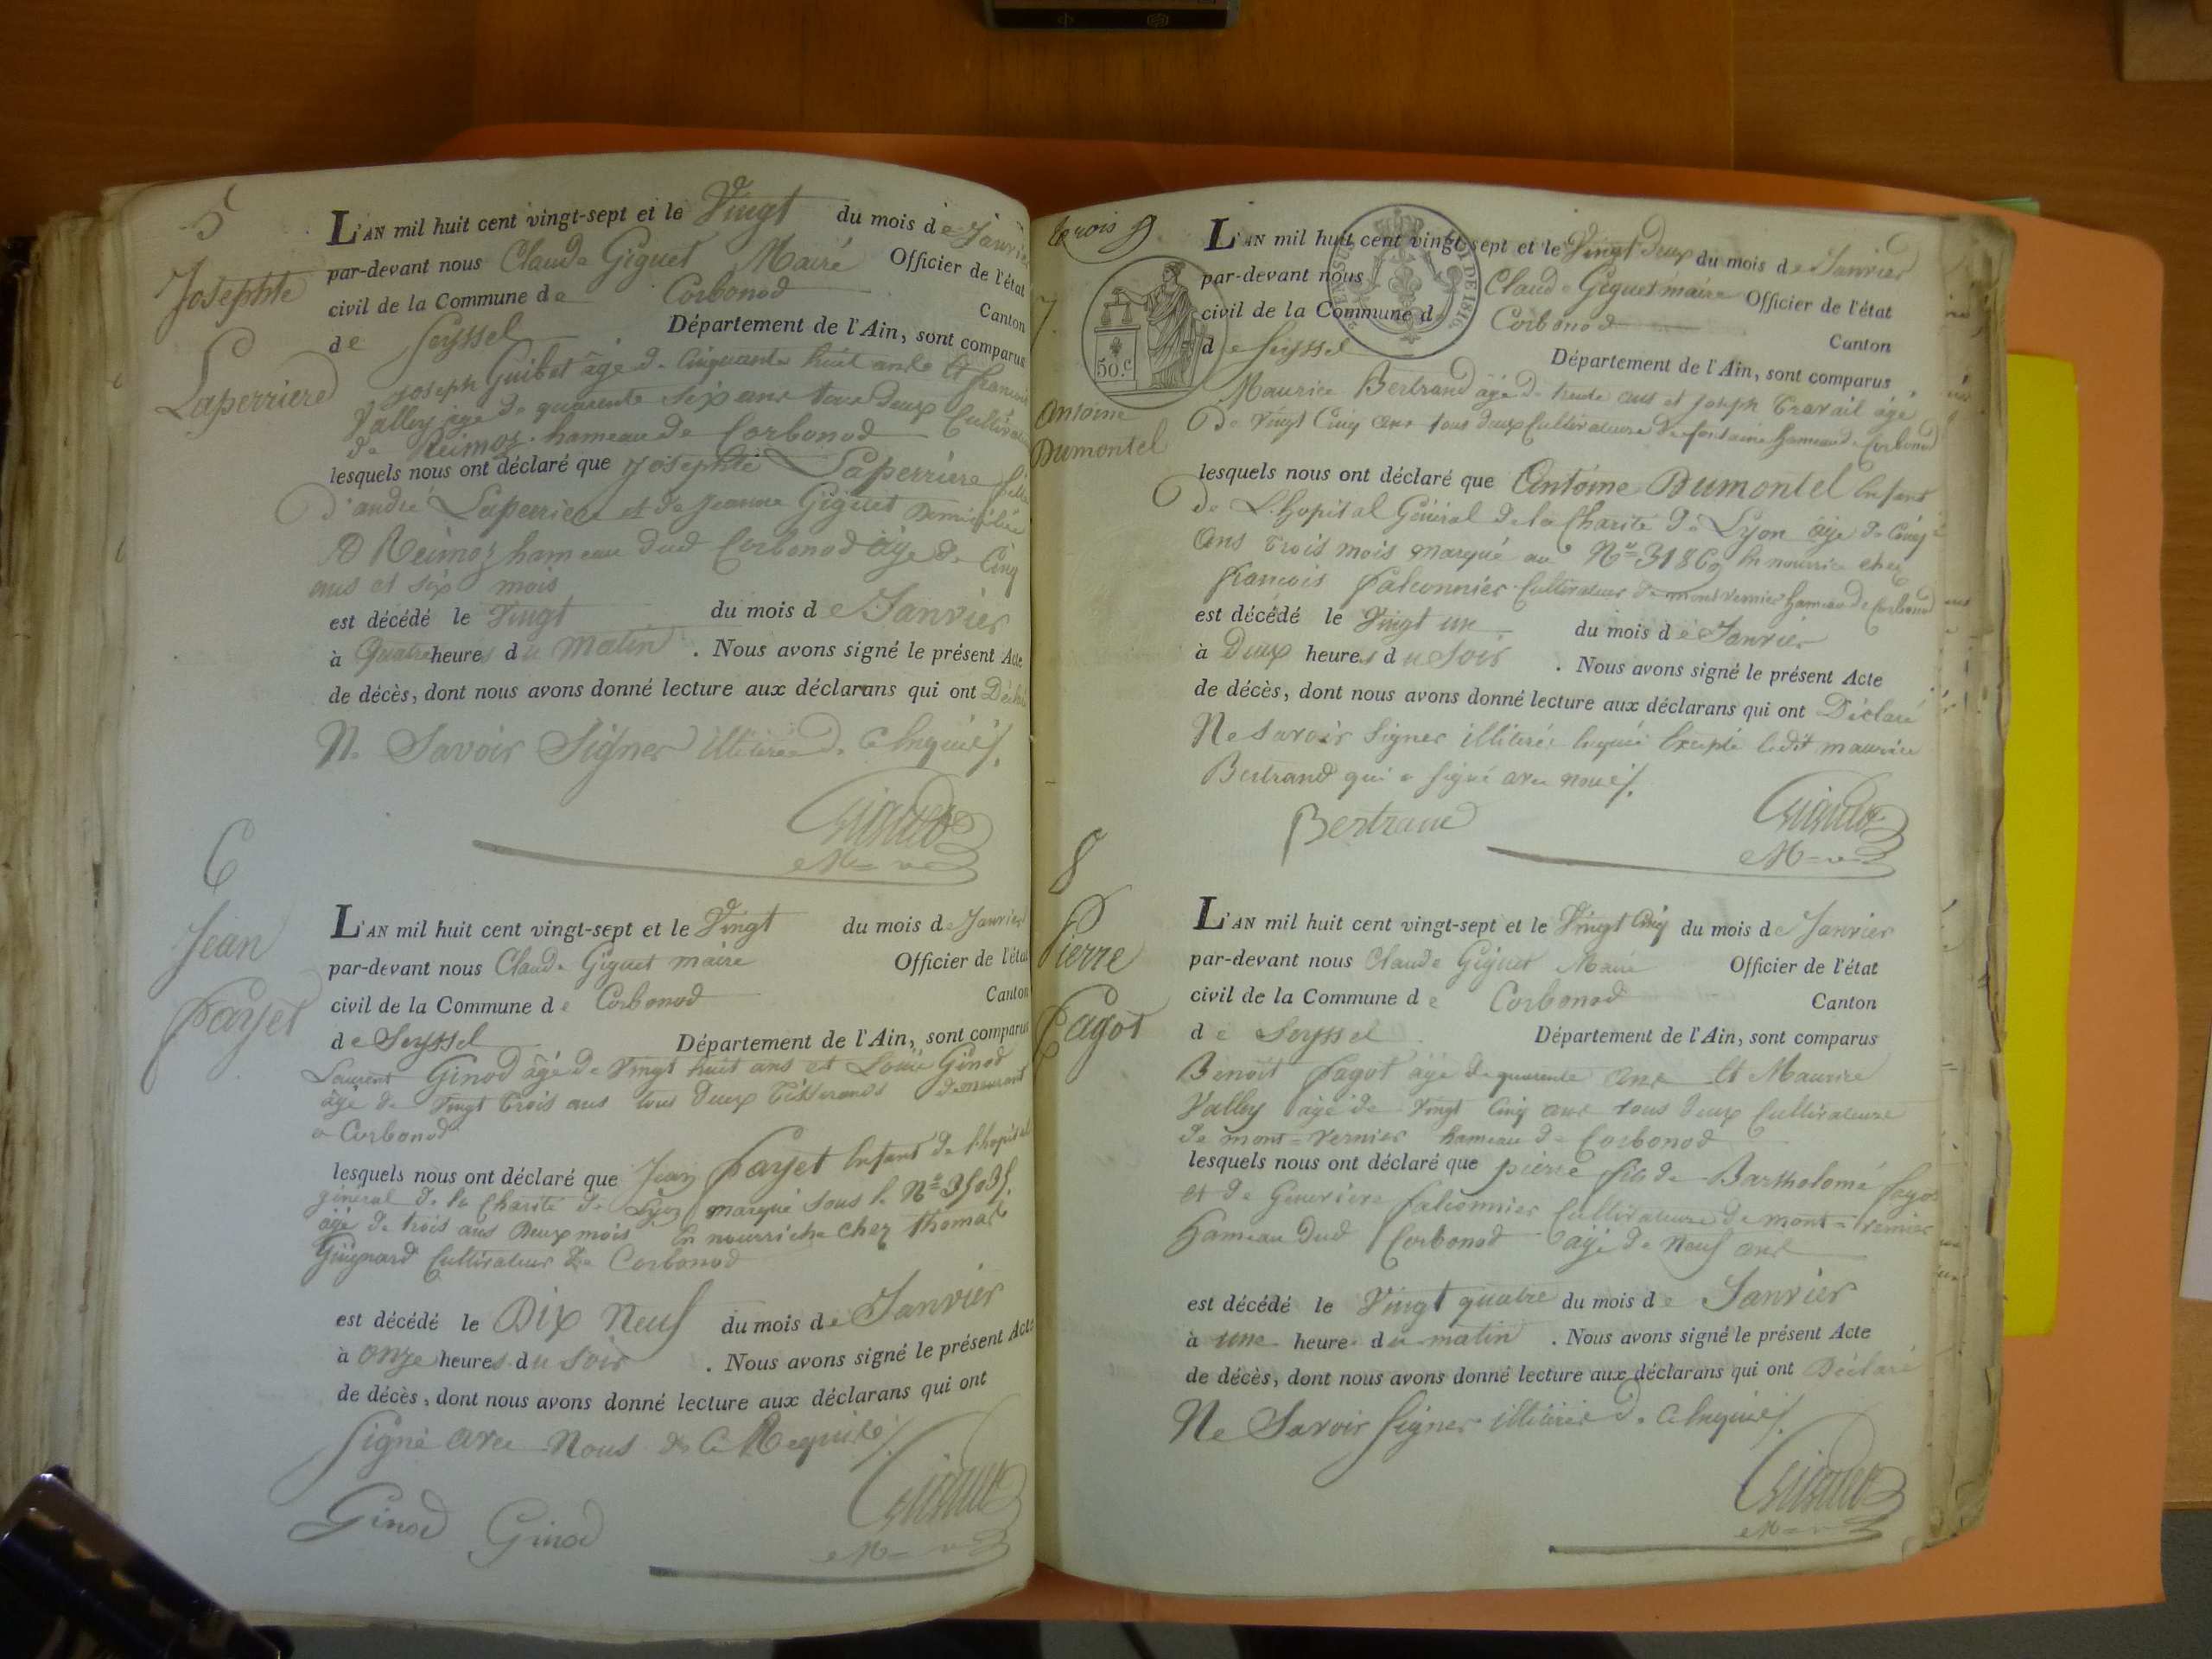 5
Josephte
Laperriere
L'AN mil huit cent vingt-sept et le Vingt du mois de Janvier
par-devant nous Claude Giguet Maire Officier de l'état
civil de la Commune de Corbonod Canton
de Seyssel Département de l'Ain, sont comparus
Joseph Guibet âgé de Cinquante huit ans Et
Vallry âgé de quarente Six ans tous deux
de Reimoz hameau de Corbonod
lesquels nous ont déclaré que Josephte Laperriere fille
D'andré Laperriere et de Jeanne Giguet Domiciliée
A Reimoz hameau dud Corbonod âge de Cinq
ans et six mois
est décédé le Vingt du mois de Janvier
à Quatre heures du Matin . Nous avons signé le présent Acte
de décès, dont nous avons donné lecture aux déclarans qui ont
Ne Savoir Signer illitérée de ce Enquis/.
6
Jean
Payet
L'AN mil huit cent vingt-sept et le Vingt du mois de Janvier
par-devant nous Claude Giguet maire Officier de l'état
civil de la Commune de Corbonod Canton
de Seyssel Département de l'Ain, sont comparus
Laurent Ginod âgé de Vingt huit ans et Louis Ginod
âgé de Vingt trois ans tous deux Tisserands demeurant
a Corbonod
lesquels nous ont déclaré que Jean Payet Enfant de l'hopital
général de la Charité de Lyon marqué sous le N°
âgé de trois ans Deux mois En nourriche chez thomas
Guignard Cultivateur de Corbonod
est décédé le Dix Neuf du mois de Janvier
à onze heures du Soir . Nous avons signé le présent Acte
de décès, dont nous avons donné lecture aux déclarans qui ont
Signé avec Nous de Ce Requis/.
Ginod Ginod
7
50.c
LOI DE 1816
Antoine
Dumontel
L'AN mil huit cent vingt-sept et le Vingt Deux du mois de Janvier
par-devant nous Claude Giguet maire Officier de l'état
civil de la Commune de Corbonod Canton
de Seyssel Département de l'Ain, sont comparus
Maurice Bertrand âgé de trente ans et Joseph Travail âgé
De Vingt Cinq ans tous deux Cultivateurs de fontaine hameau de Corbonod
lesquels nous ont déclaré que Antoine Dumontel Enfant
de L'hopital Général de la Charité de Lyon âge de Cinq
Ans trois mois marqué au N° 3186 En nourrice chez
francois falconnier Cultivateur de mont vernier hameau de Corbonod
est décédé le Vingt un du mois de Janvier
à Deux heures du Soir . Nous avons signé le présent Acte
de décès, dont nous avons donné lecture aux déclarans qui ont Déclaré
Ne savoir Signer illitérée Enquis Excepté ledit maurice
Bertrand qui a Signé avec nous/.
Bertrand
8
Pierre
fagot
L'AN mil huit cent vingt-sept et le Vingt Cinq du mois de Janvier
par-devant nous Claude Giguet Maire Officier de l'état
civil de la Commune de Corbonod Canton
de Seyssel Département de l'Ain, sont comparus
Benoît fagot âgé de quarente ans Et Maurice
Vallry âgé de Vingt Cinq ans tous deux Cultivateurs
de mont-vernier hameau de Corbonod
lesquels nous ont déclaré que pierre fils de Bartholomé fagot
et de Genevieve falconnier Cultivateurs de mont-vernier
hameau dud Corbonod âgé de Neuf ans
est décédé le Vingt quatre du mois de Janvier
à une heure du matin . Nous avons signé le présent Acte
de décès, dont nous avons donné lecture aux déclarans qui ont Déclaré
Ne Savoir Signer illitérée de ce Enquis/.